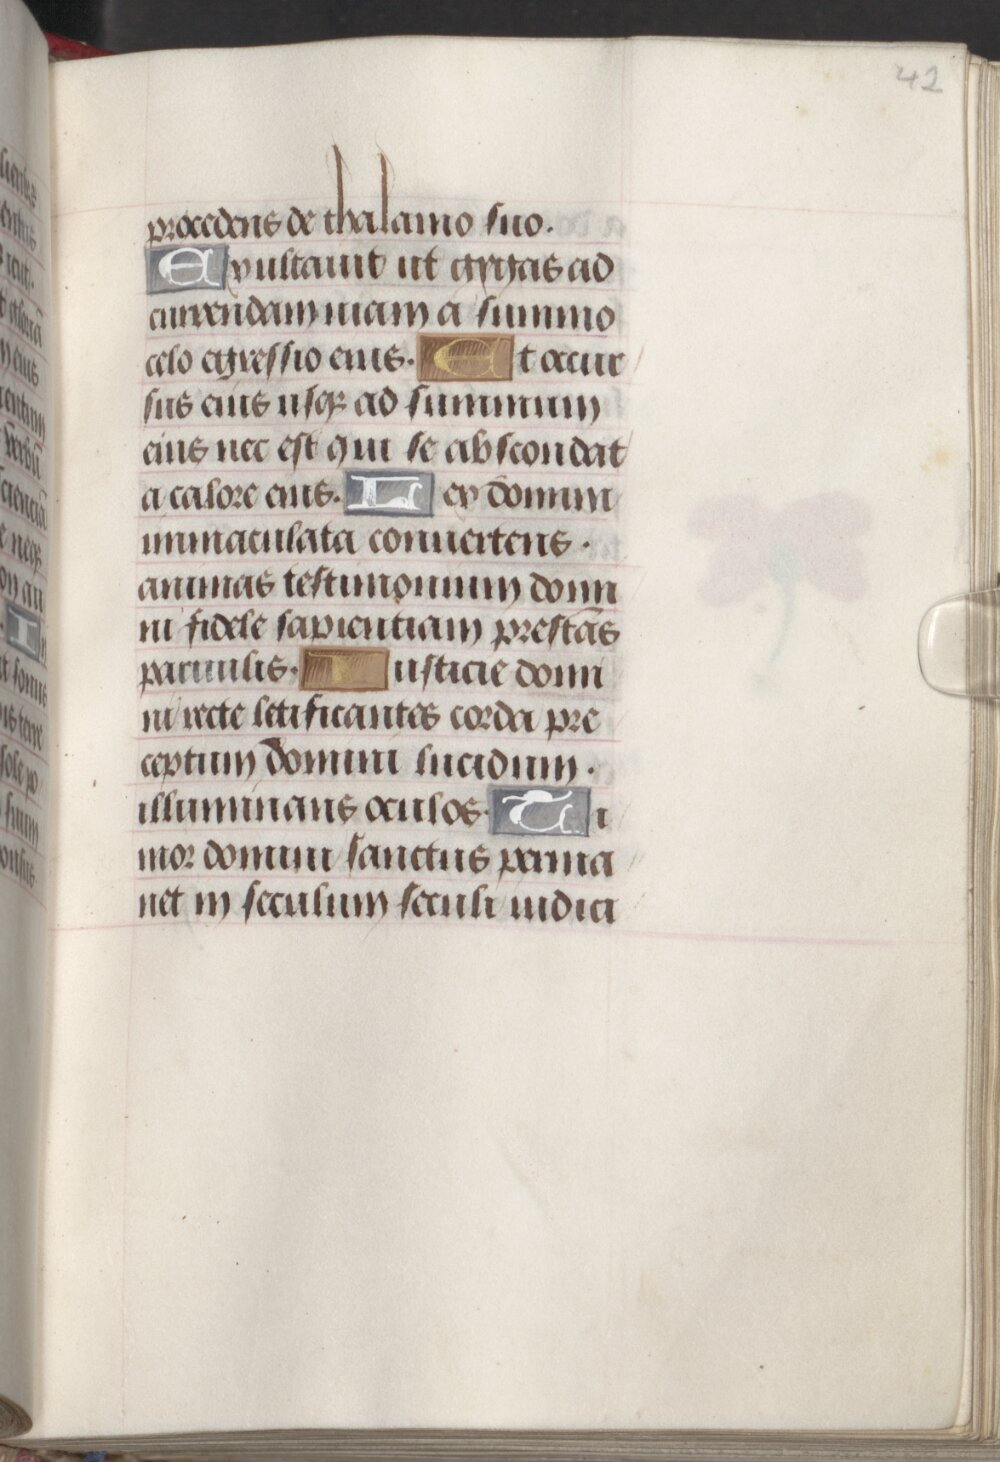 42
procedens de thalamo suo.
Exultauit ut gygas ad
currendam uiam a summo
celo egressio eius. Et occur
sus eius usqꝫ ad summum
eius nec est qui se abscondat
a calore eius. Lex domini
immaculata conuertens .
animas testimonium domi
ni fidele sapientiam prestãs
paruulis. Iusticie domi
ni recte letificantes corda pre
ceptum domini lucidum .
illuminans oculos. Ti
mor domini sanctus perma
net in seculum seculi iudici